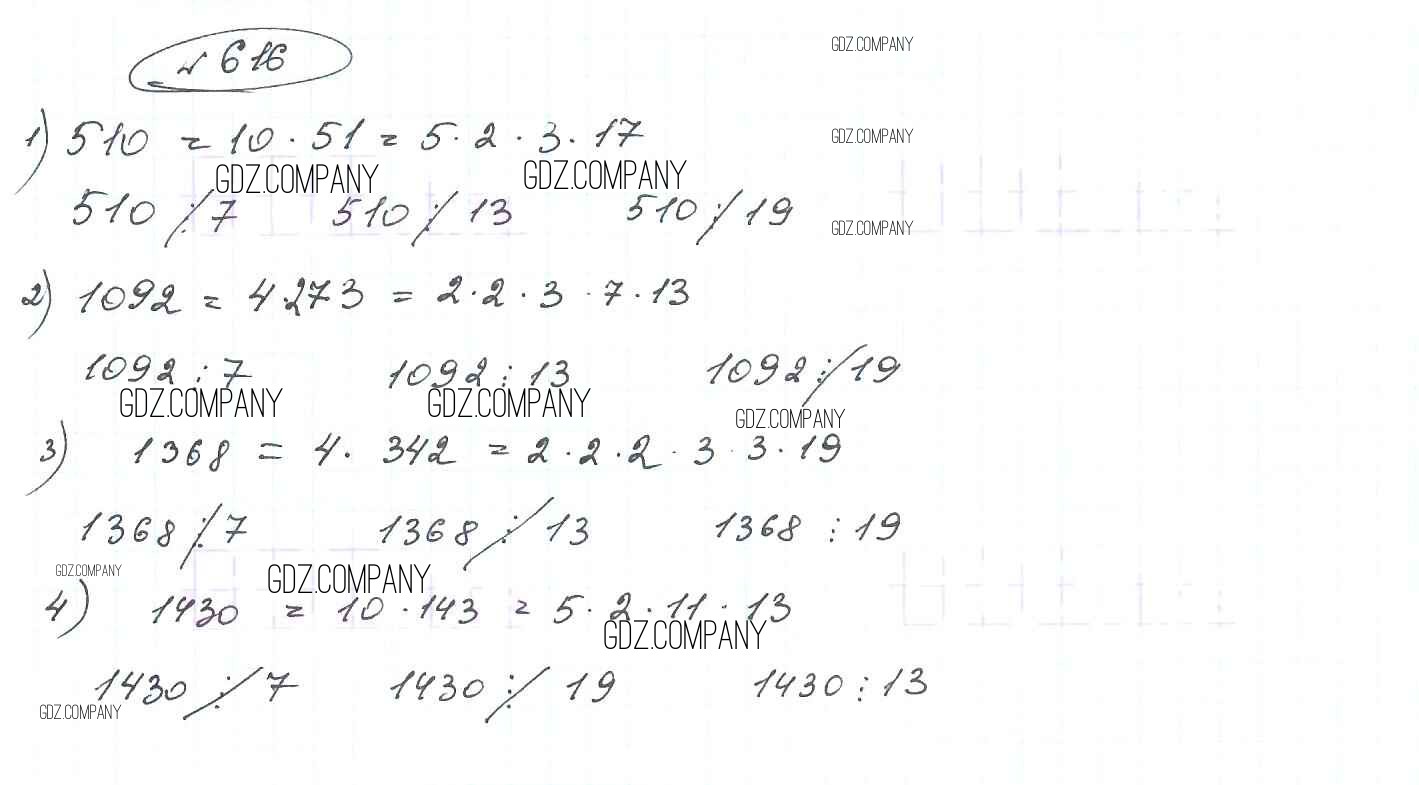 № 616
GDZ.COMPANY
1) 510 = 10 · 51 = 5 · 2 · 3 · 17
GDZ.COMPANY
GDZ.COMPANY GDZ.COMPANY
510 ⋮̸ 7 510 ⋮̸ 13 510 ⋮̸ 19
GDZ.COMPANY
2) 1092 = 4·273 = 2·2·3·7·13
1092 ⋮ 7 1092 ⋮ 13 1092 ⋮̸ 19
GDZ.COMPANY GDZ.COMPANY GDZ.COMPANY
3) 1368 = 4· 342 = 2·2·2·3·3·19
1368 ⋮̸ 7 1368 ⋮̸ 13 1368 ⋮ 19
GDZ.COMPANY GDZ.COMPANY
4) 1430 = 10·143 = 5·2·11·13
GDZ.COMPANY
1430 ⋮̸ 7 1430 ⋮̸ 19 1430 ⋮ 13
GDZ.COMPANY